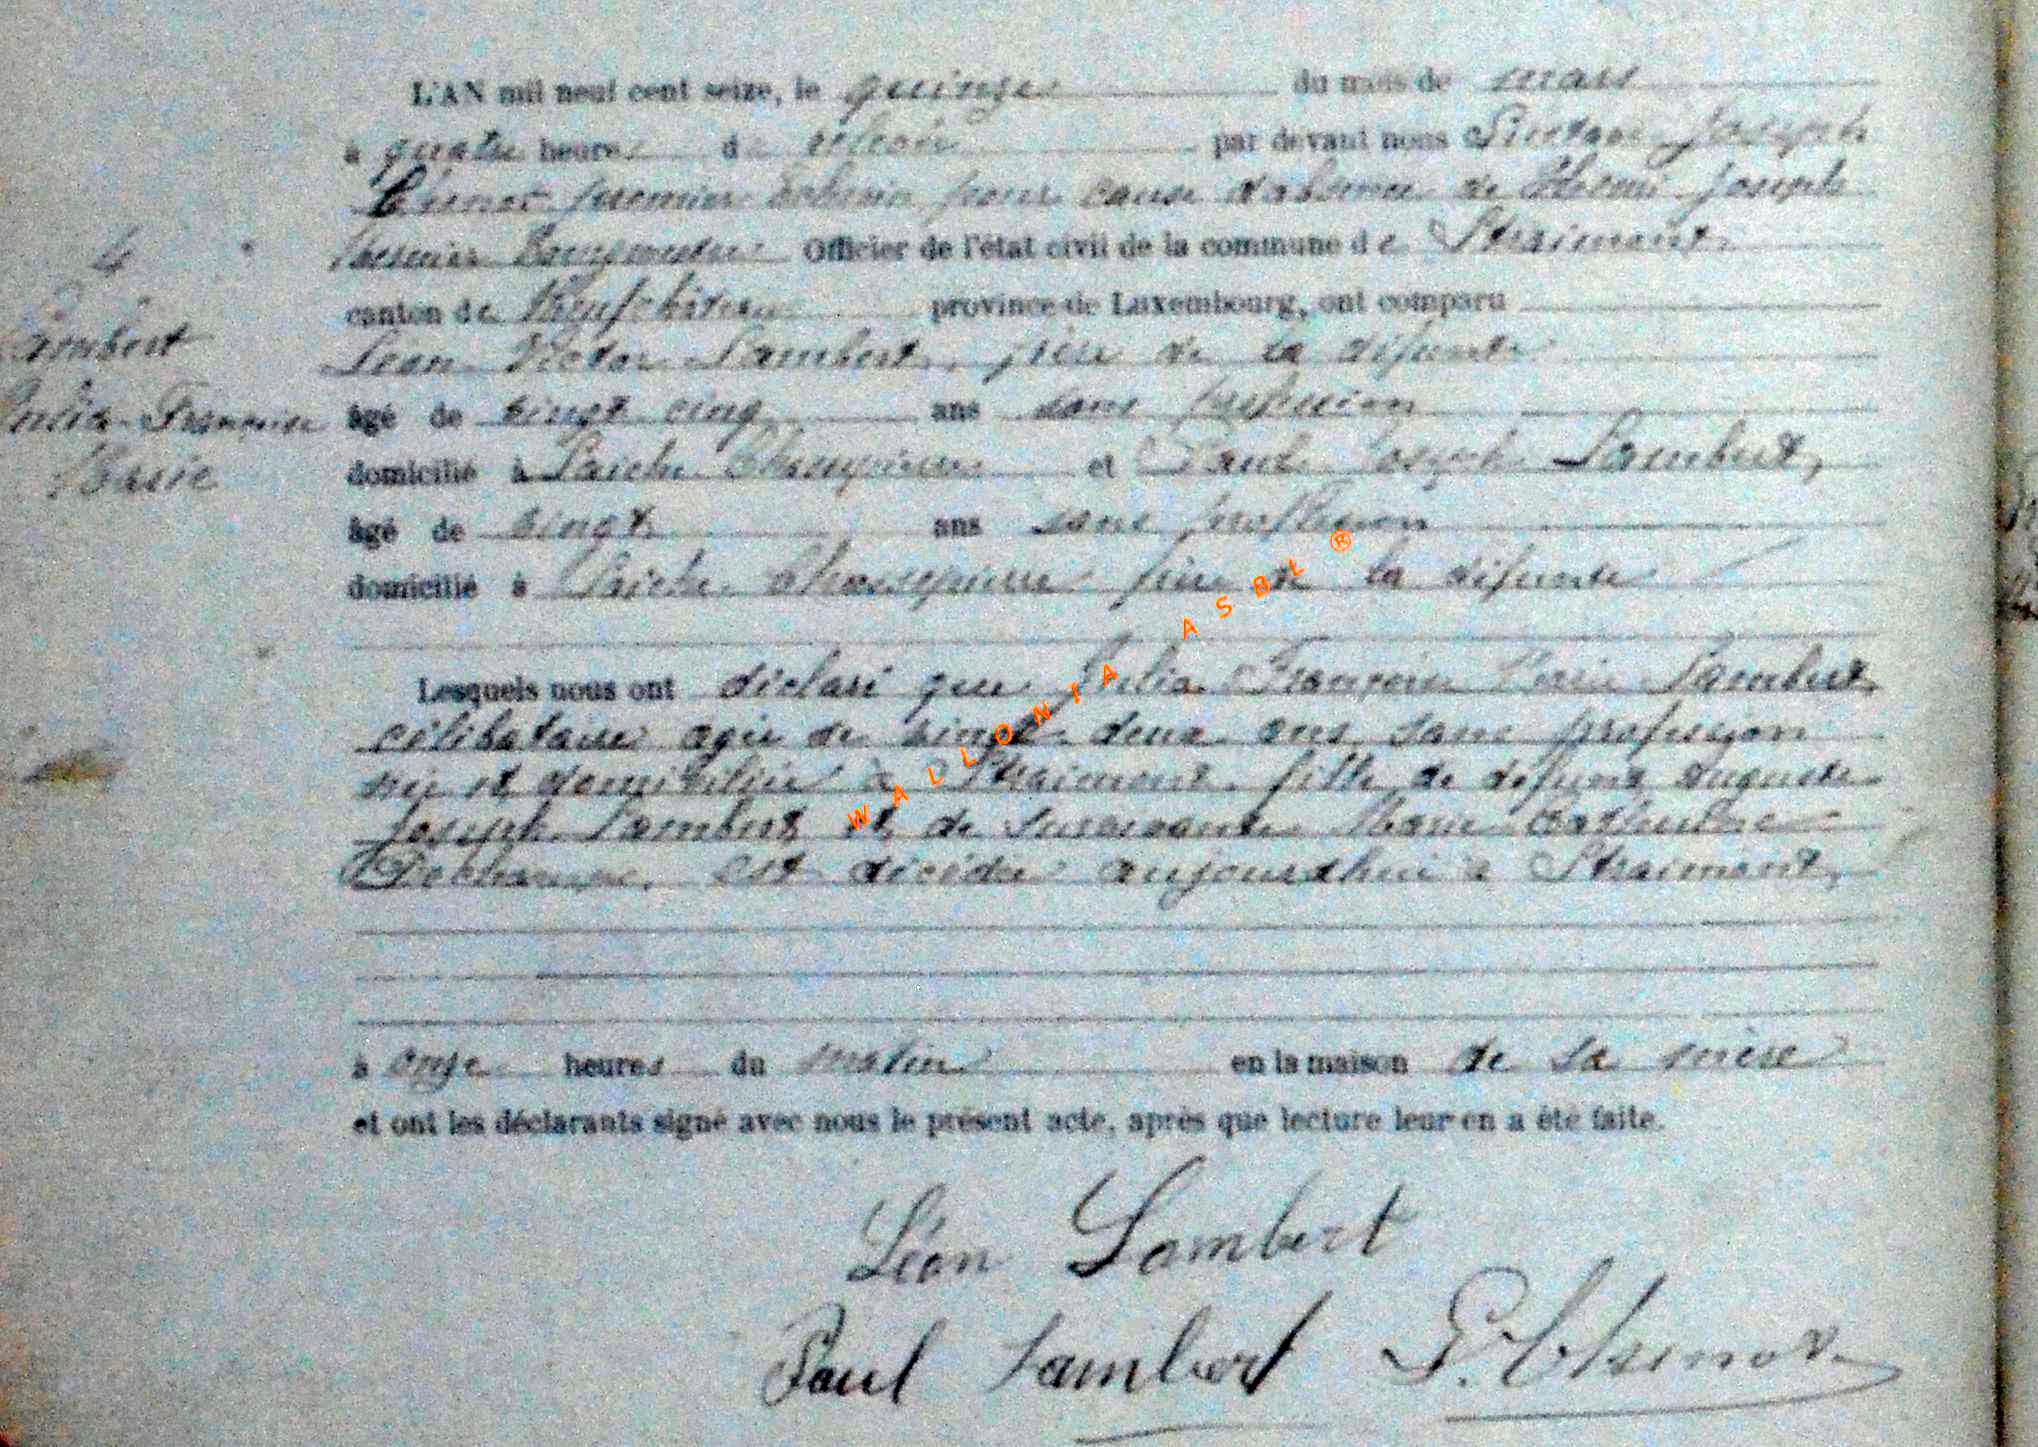 L'AN mil neuf cent seize, le quinze du mois de mars
à quatre heures du par devant nous Joseph
premier Echevin pour cause d'absence de Joseph
Bourgmestre Officier de l'état civil de la commune de Straimont
canton de Neufchâteau province de Luxembourg, ont comparu
Léon Victor Lambert, frère de la défunte
âgé de vingt cinq ans sans profession
domicilié à Laiche Chassepierre et Paul Joseph Lambert,
âgé de vingt ans sans profession
domicilié à Laiche Chassepierre frère de la défunte
Lesquels nous ont déclaré que Julia Françoise Marie Lambert,
célibataire agée de vingt deux ans sans profession
née et domiciliée à Straimont fille de défunt Auguste
Joseph Lambert et de survivante Marie
est décédée aujourdhui à Straimont,
à onze heures du matin en la maison de sa mère
et ont les déclarants signé avec nous le présent acte, après que lecture leur en a été faite.
Léon Lambert
Paul Lambert
4
Lambert
Julia Françoise
Marie
WALLONIA ASBL ®